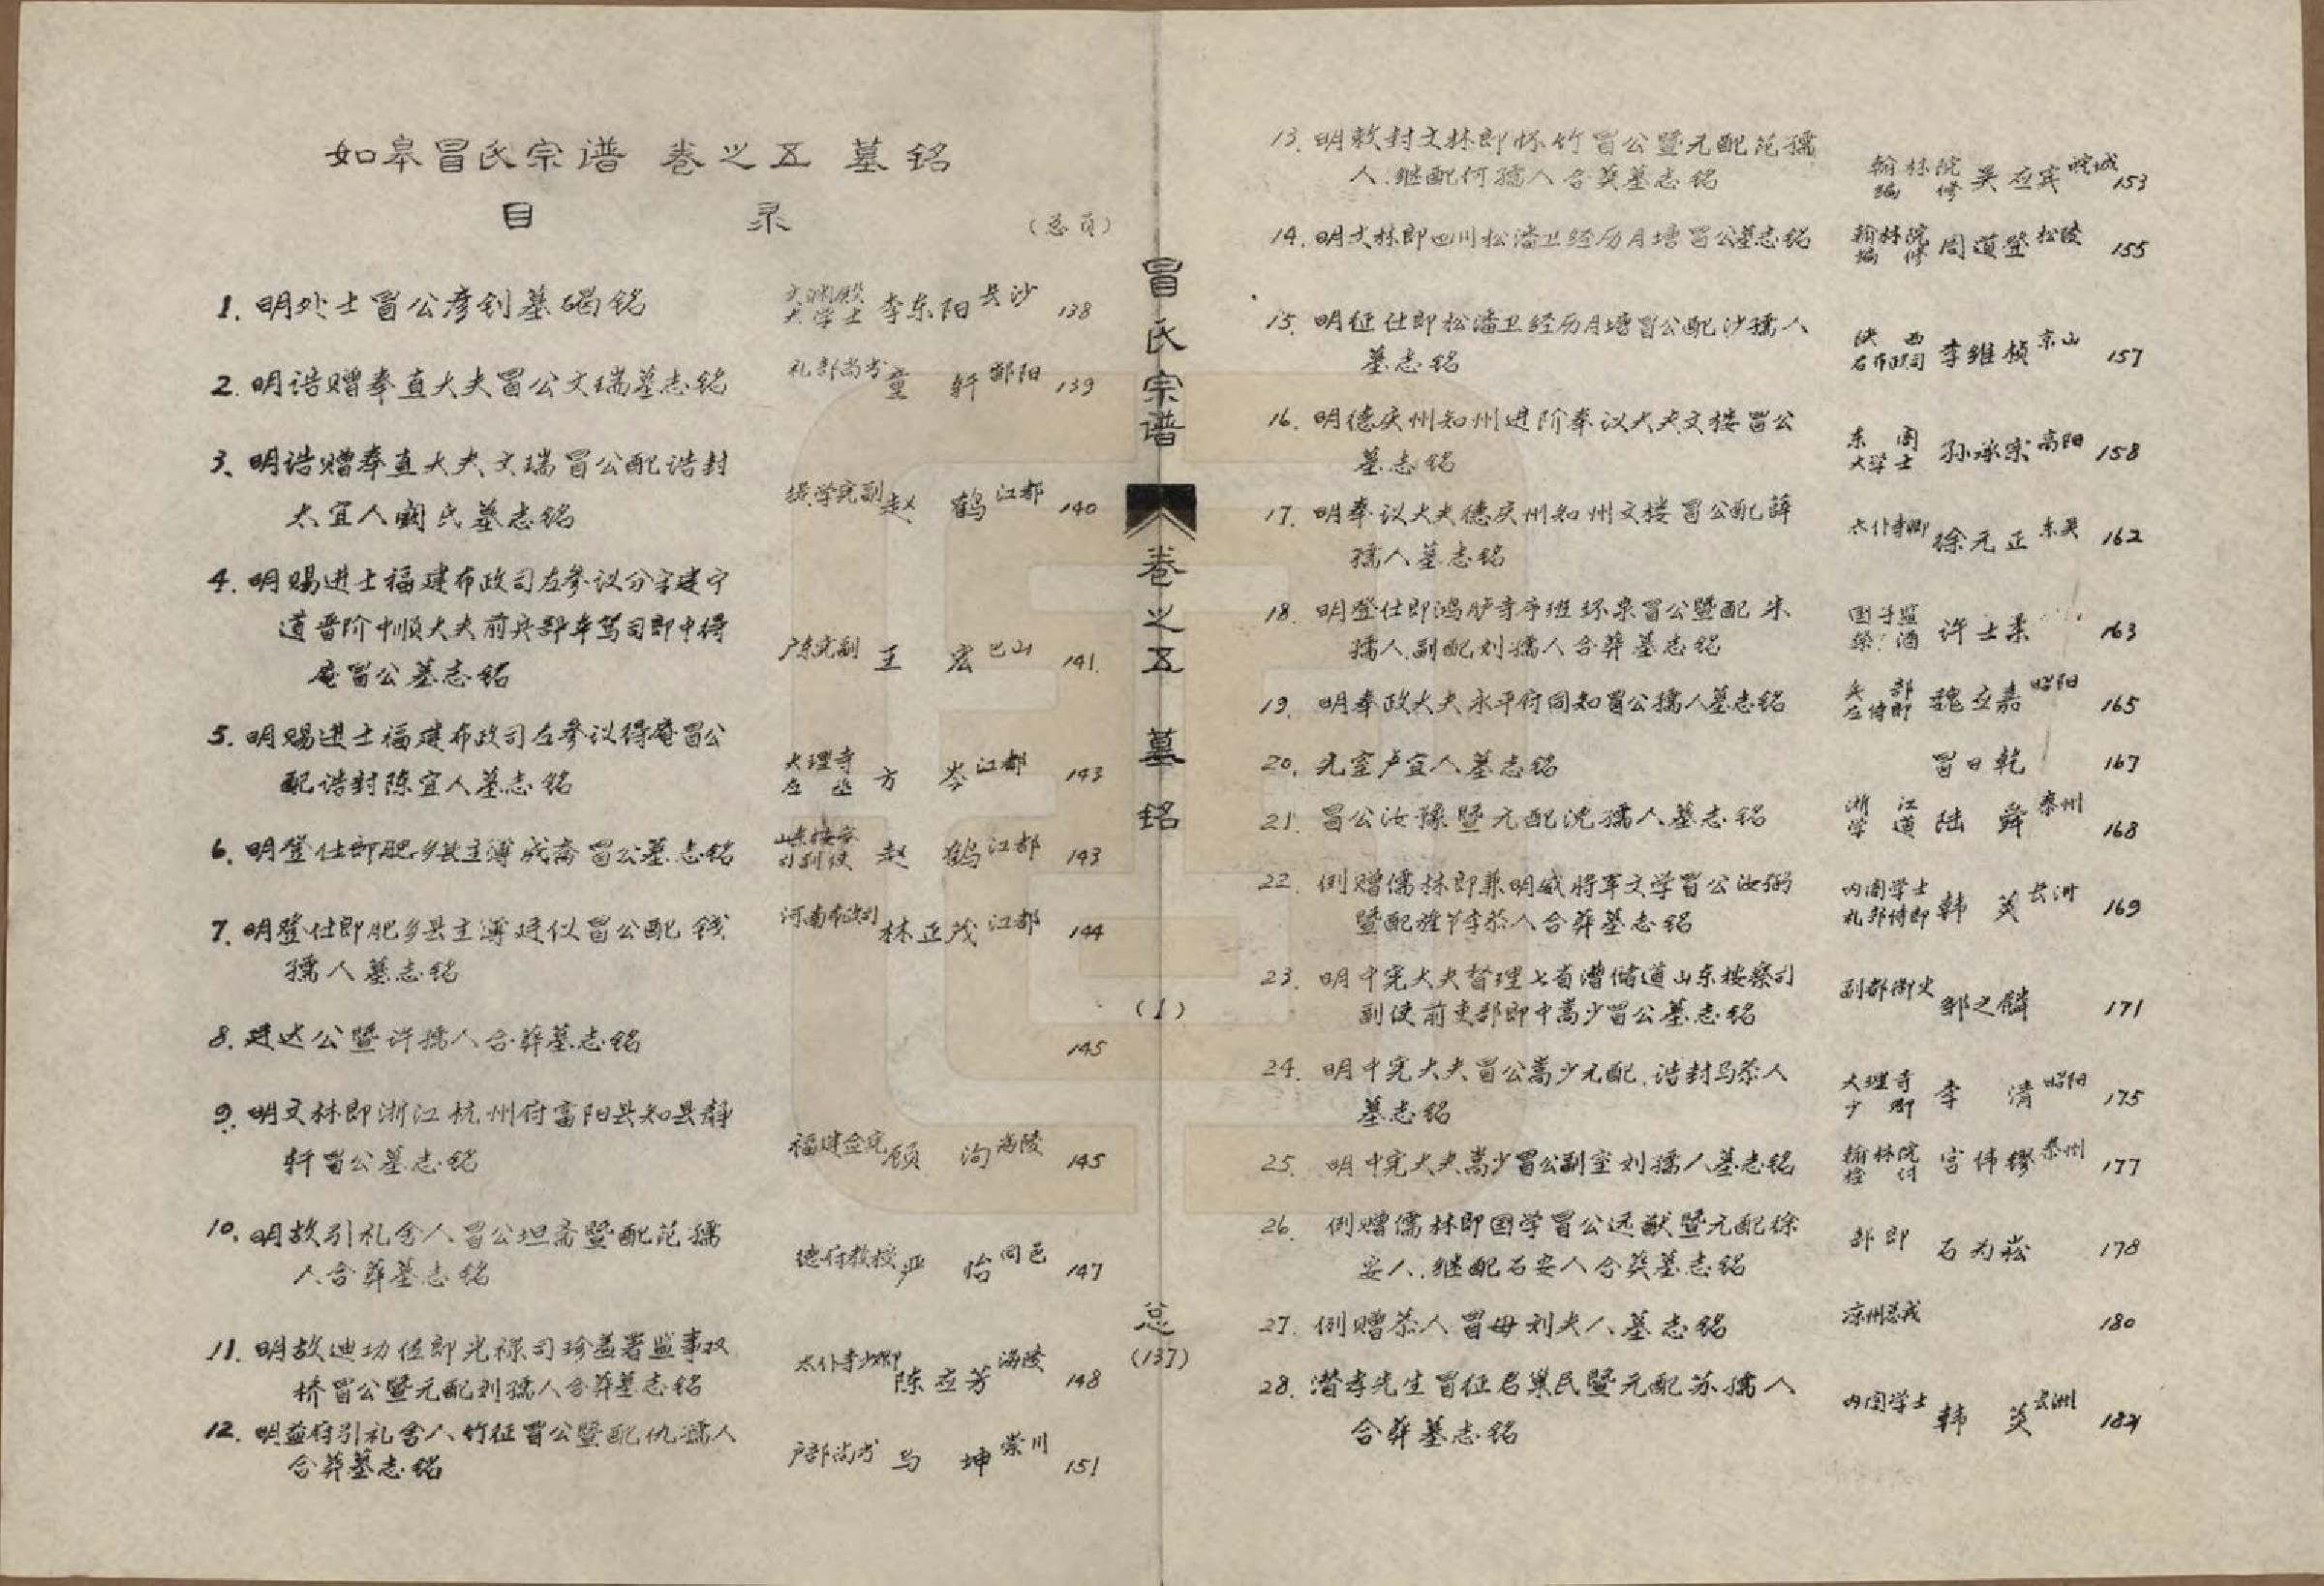 如皋冒氏宗谱 卷之五 墓铭
目 录 (总页)
1. 明处士冒公彦钊墓碣铭 文渊殿大学士 李东阳 长沙 138
2. 明诰赠奉直大夫冒公文瑞墓志铭 礼部尚书 童 轩 鄱阳 139
3. 明诰赠奉直大夫文瑞冒公配诰封
太宜人阚氏墓志铭 提学宪副 赵 鹤 江都 140
4. 明赐进士福建布政司左参议分守建宁
道晋阶中顺大夫前兵部车驾司郎中得
庵冒公墓志铭 广东宪副 王 宏 巴山 141
5. 明赐进士福建布政司左参议得庵冒公
配诰封陈宜人墓志铭 大理寺左丞 方 岑 江都 143
6. 明登仕郎肥乡县主簿成斋冒公墓志铭 山东按察司副使 赵 鹤 江都 143
7. 明登仕郎肥乡县主簿廷似冒公配钱
孺人墓志铭 河南布政 林正茂 江都 144
8. 廷达公暨许孺人合葬墓志铭 145
9. 明文林郎浙江杭州府富阳县知县静
轩冒公墓志铭 福建佥宪 顾 洵 海陵 145
10. 明故引礼舍人冒公坦斋暨配范孺
人合葬墓志铭 德府教授 严 怡 同邑 147
11. 明故迪功佐郎光禄司珍羞署监事双
桥冒公暨元配刘孺人合葬墓志铭 太仆寺少卿 陈应芳 海陵 148
12. 明益府引礼舍人竹征冒公暨配仇孺人
合葬墓志铭 户部尚书 马 坤 崇川 151
冒氏宗谱 卷之五 墓铭
(1)
总
(137)
13. 明敕封文林郎怀竹冒公暨元配范孺
人、继配何孺人合葬墓志铭 翰林院编修 吴应宾 皖城 153
14. 明文林郎四川松潘卫经历月塘冒公墓志铭 翰林院编修 周道登 松陵 155
15. 明征仕郎松潘卫经历月塘冒公配沙孺人
墓志铭 陕西右布政司 李维桢 京山 157
16. 明德庆州知州进阶奉议大夫文楼冒公
墓志铭 东阁大学士 孙承宗 高阳 158
17. 明奉议大夫德庆州知州文楼冒公配薛
孺人墓志铭 太仆寺卿 徐元正 东吴 162
18. 明登仕郎鸿胪寺序班环泉冒公暨配朱
孺人、副配刘孺人合葬墓志铭 国子监祭酒 许士柔 163
19. 明奉政大夫永平府同知冒公孺人墓志铭 兵部左侍郎 魏应嘉 昭阳 165
20. 元室卢宜人墓志铭 冒日乾 167
21. 冒公汝豫暨元配沈孺人墓志铭 浙江学道 陆 舜 泰州 168
22. 例赠儒林郎兼明威将军文学冒公汝弼
暨配旌节李恭人合葬墓志铭 内阁学士礼部侍郎 韩 菼 长洲 169
23. 明中宪大夫督理七省漕储道山东按察司
副使前吏部郎中嵩少冒公墓志铭 副都御史 邹之麟 171
24. 明中宪大夫冒公嵩少元配、诰封马恭人
墓志铭 大理寺少卿 李 清 昭阳 175
25. 明中宪大夫嵩少冒公副室刘孺人墓志铭 翰林院检讨 宫伟镠 泰州 177
26. 例赠儒林郎国学冒公远猷暨元配徐
安人、继配石安人合葬墓志铭 部郎 石为崧 178
27. 例赠恭人冒母刘夫人墓志铭 凉州总戎 180
28. 潜孝先生冒征君巢民暨元配苏孺人
合葬墓志铭 内阁学士 韩 菼 长洲 184